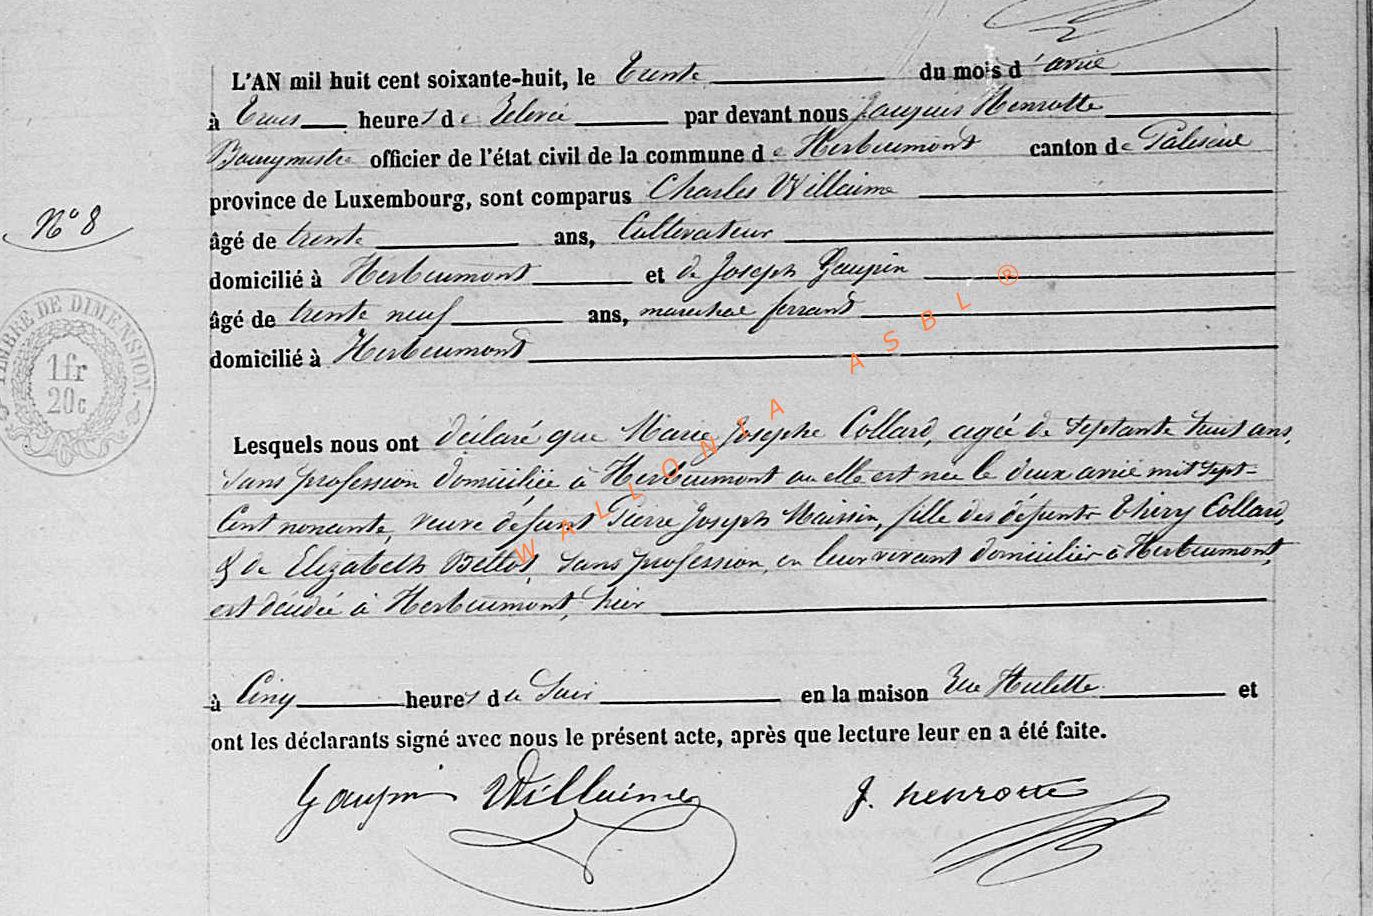 L'AN mil huit cent soixante-huit, le trente du mois d'avril
à trois heures de relevée par devant nous Jacques Henrotte
Bourgmestre officier de l'état civil de la commune de Herbeumont canton de Paliseul
province de Luxembourg, sont comparus Charles Willaime
N° 8
âgé de trente ans, Cultivateur
domicilié à Herbeumont et de Joseph Gaupin
âgé de trente neuf ans, marechal ferrant
domicilié à Herbeumont
TIMBRE DE DIMENSION.
1fr
20c
Lesquels nous ont déclaré que Marie Josephe Collard, agée de septante huit ans,
sans profession domiciliée à Herbeumont ou elle est née le deux avril mil sept-
Cent nonante, veuve défunt Pierre Joseph Maissin, fille des défunts Thiry Collard,
& de Elizabeth Bellot, sans profession, en leur vivant domicilier à Herbeumont,
est décédée à Herbeumont, hier
à Cinq heures du Soir en la maison Rue Hulette et
ont les déclarants signé avec nous le présent acte, après que lecture leur en a été faite.
Gaupin Willaime J. henrotte
WALLONIA ASBL ®